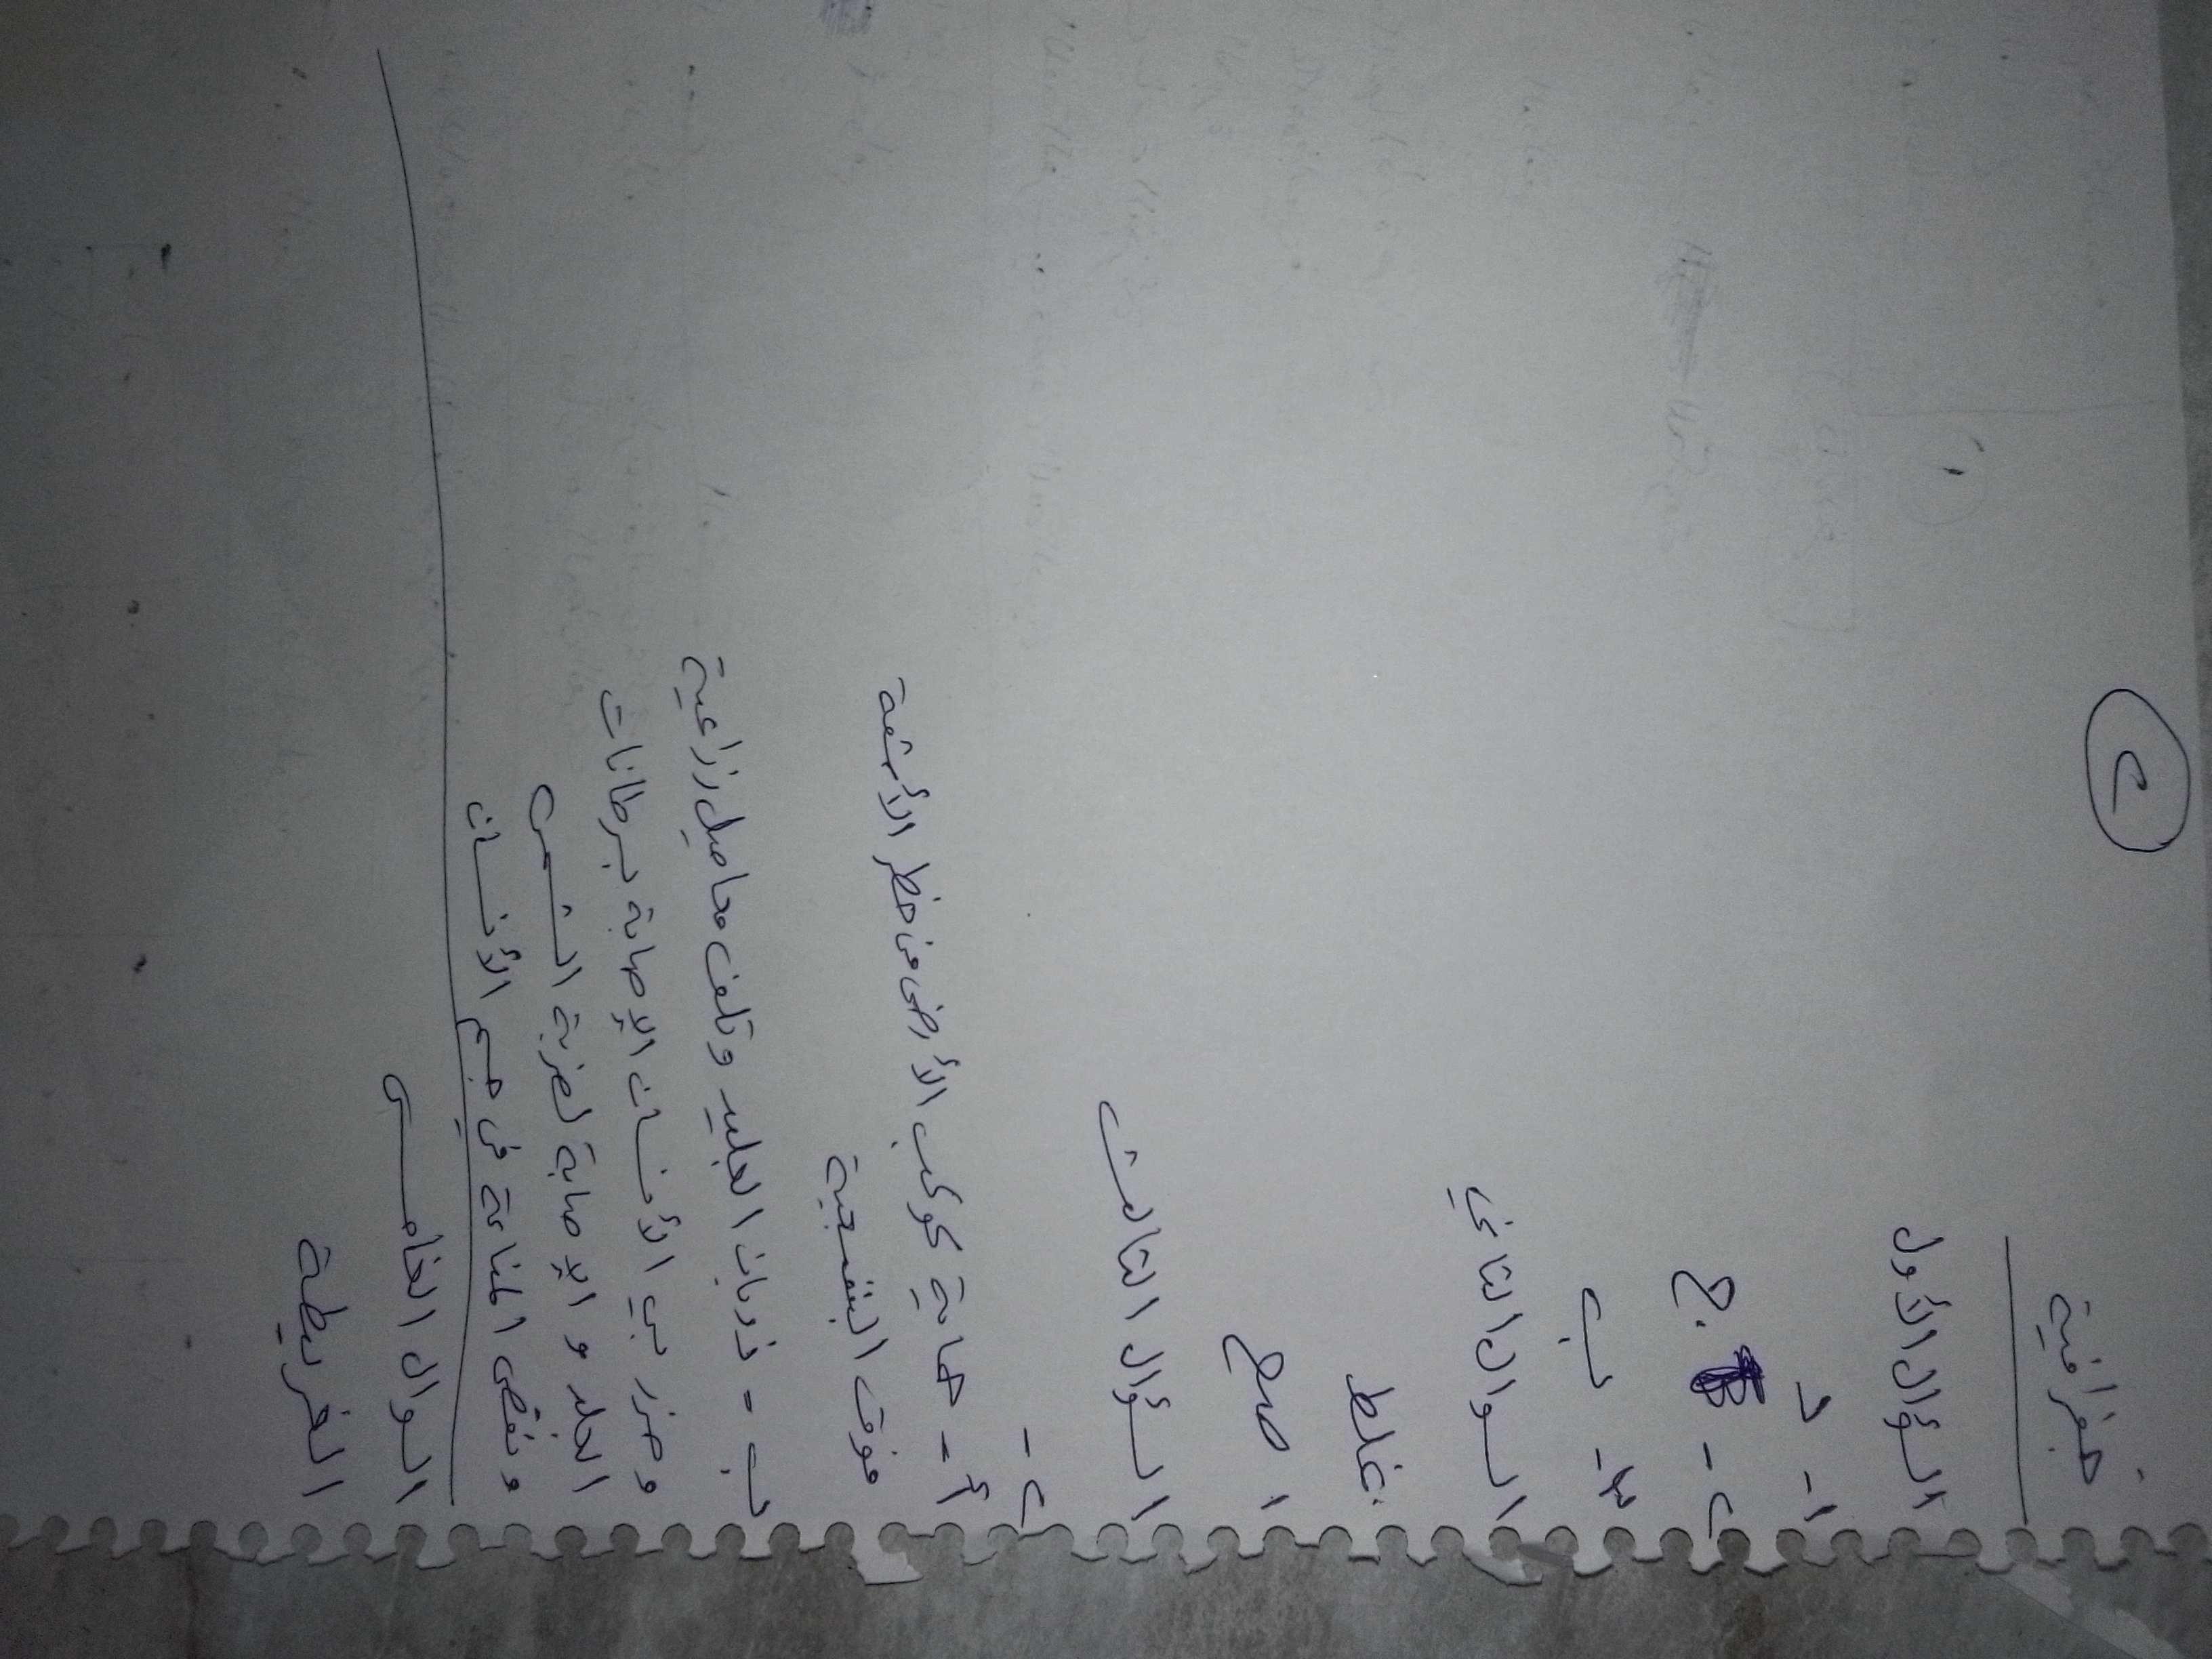 ٢
جغرافية
السؤال الأول
١- د
٢- ج
٣- ب
السوال الثاني
غلط
١ صح
السؤال الثالث
٢-
أ- حماية كوكب الأرض من خطر الأشعة
فوق البنفسجية
ب - ذوبان الجليد وتلف محاصيل زراعية
وضرر بي الأنسان الإصابة بسرطانات
الجلد و الإصابة لضربة الشمس
ونقص المناعة في جسم الأنسان
السوال الخامس
الخريطة